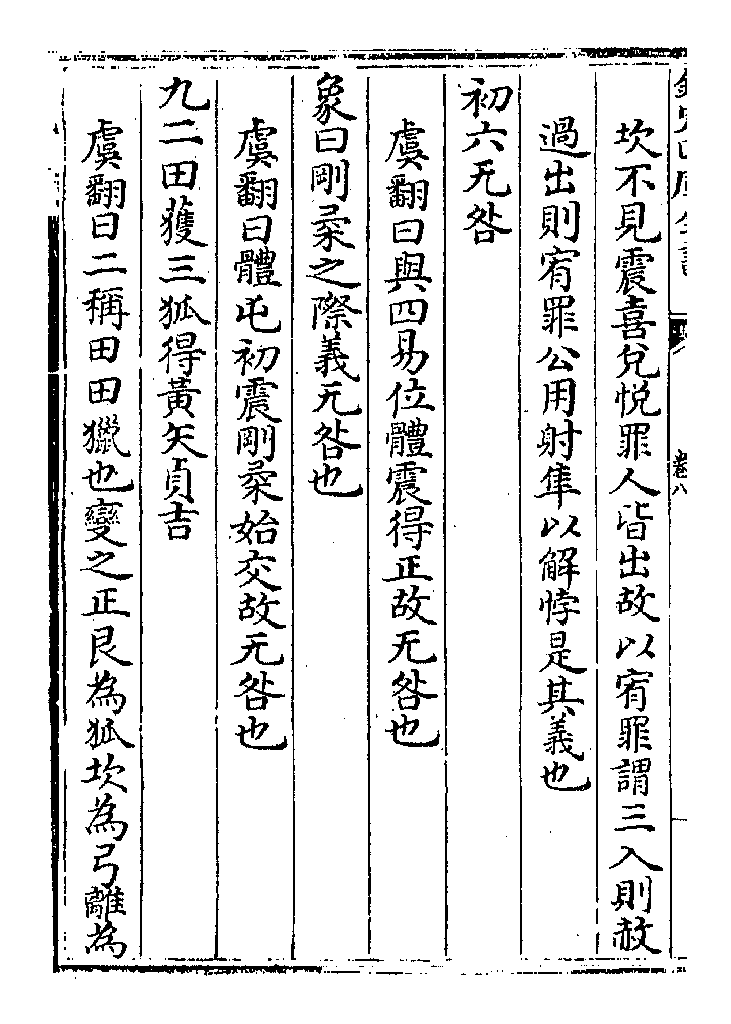 坎不見震喜兌悦罪人皆出故以宥罪謂三入則赦
過出則宥罪公用射隼以解悖是其義也
初六无咎
虞翻曰與四易位體震得正故无咎也
象曰剛柔之際義无咎也
虞翻曰體屯初震剛柔始交故无咎也
九二田獲三狐得黃矢貞吉
虞翻曰二稱田田獵也變之正艮為狐坎為弓離為
卷八